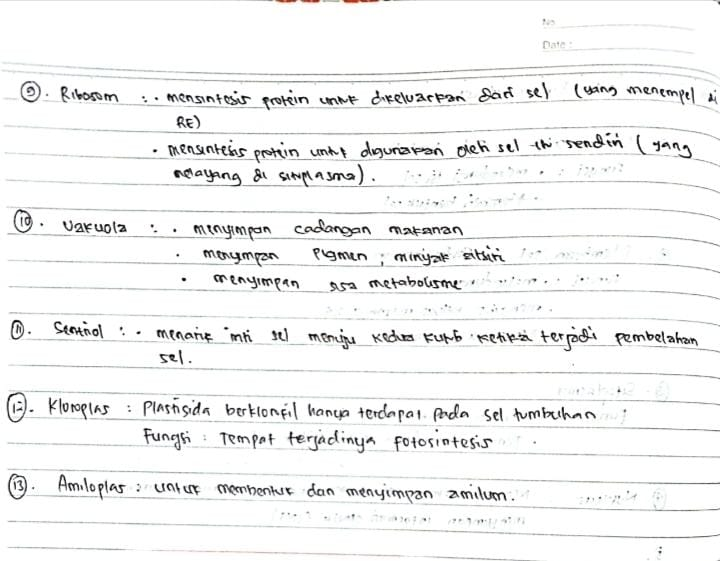 No
Date :
9. Ribosom : • mensintesis protein untuk dikeluarkan dari sel (yang menempel di
RE)
• mensintesis protein untuk digunakan oleh sel itu sendiri (yang
melayang di sitoplasma).
10. Vakuola : • menyimpan cadangan makanan
• menyimpan pigmen, minyak atsiri
• menyimpan sisa metabolisme
11. Sentriol : • menarik inti sel menuju kedua kutub ketika terjadi pembelahan
sel.
12. Kloroplas : Plastisida berklorofil hanya terdapat pada sel tumbuhan
Fungsi : Tempat terjadinya fotosintesis
13. Amiloplas : untuk membentuk dan menyimpan amilum.